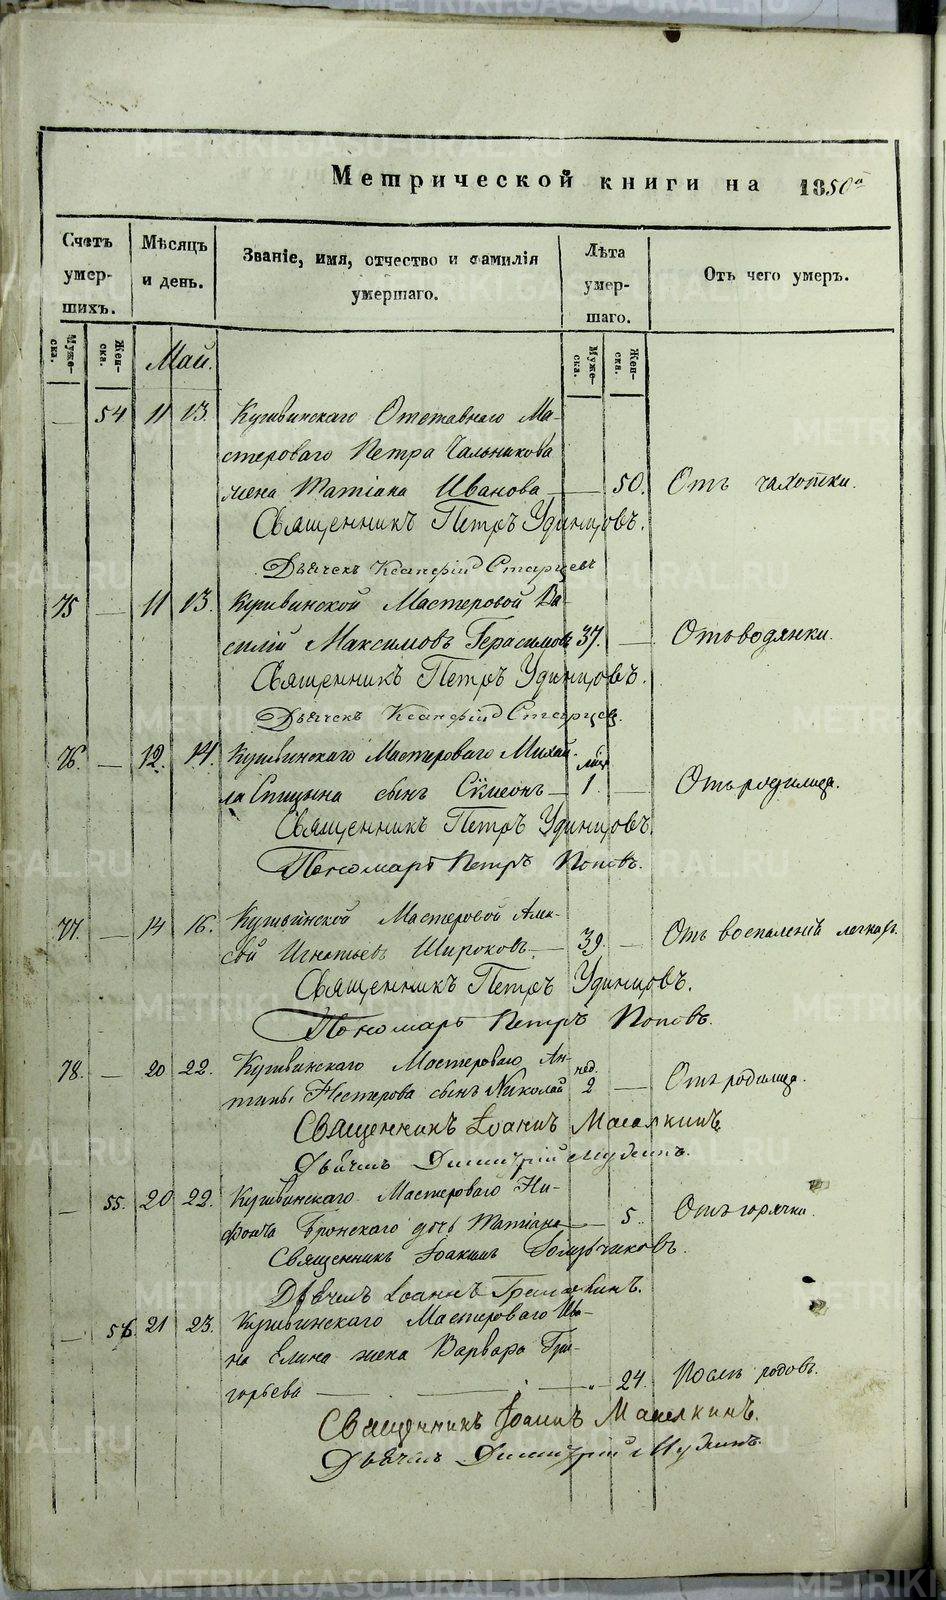 Метрической книги на 1850й
Счетъ умерших. Мѣсяцъ и день. Званіе, имя, отчество и фамилія умершаго. Лѣта умершаго. Отъ чего умеръ.
Муже-ска. Жен-ска. Май. Муже-ска. Жен-ска.
— 54 11 13. Кушвинскаго Отставнаго Ма-
стероваго Петра Чальникова
жена Татіана Иванова — 50. Отъ чахотки.
Священникъ Петръ Удинцовъ.
Дьячекъ Старцевъ
75 — 11 13. Кушвинской Мастеровой Ва-
силій Максимовъ Герасимовъ 37. — Отъ водянки.
Священникъ Петръ Удинцовъ.
Дьячекъ Старцев.
76. — 12. 14. Кушвинскаго Мастероваго Михай-
ла Спицына сынъ Сѵмеонъ — 1. — Отъ родимца.
Священникъ Петръ Удинцовъ.
Пономарь Петръ Поповъ.
77. — 14 16. Кушвинской Мастеровой Алек-
сѣй Игнатьевъ Широковъ. — 39. — Отъ воспаленій легкихъ.
Священникъ Петръ Удинцовъ.
Пономарь Петръ Поповъ.
78. — 20 22. Кушвинскаго Мастероваго Ан-
типы Нестерова сынъ Николай нед. 2 — Отъ родимца.
Священникъ Іоаннъ Масялкинъ
Дьячекъ Димитрій
— 55. 20 22. Кушвинскаго Мастероваго Ни-
фонта Бронскаго дочь Татіана — 5. Отъ горячки.
Священникъ Іоакимъ
Дьячекъ Іоаннъ
— 56. 21 23. Кушвинскаго Мастероваго Ива-
на Елина жена Варвара Гри-
горьева — 24. Послѣ родовъ.
Священникъ Іоаннъ Масялкинъ.
Дьячекъ Димитрій
METRIKI.GASO-URAL.RU